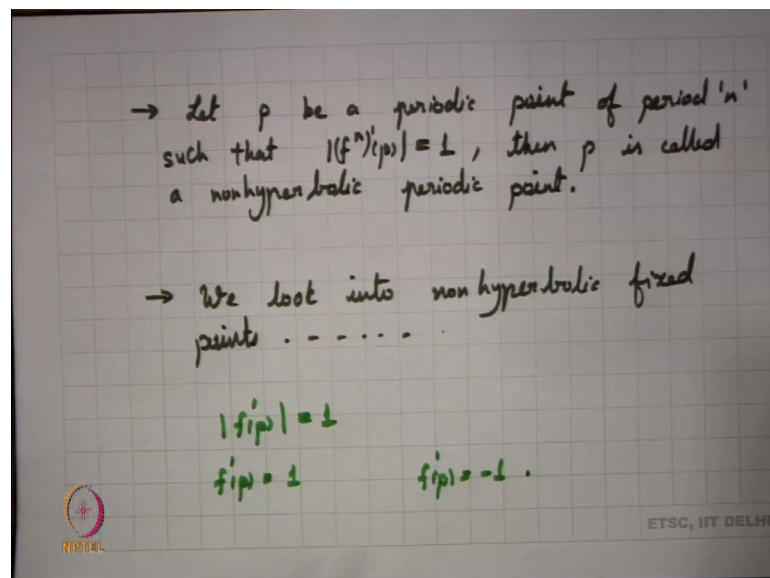 → Let p be a periodic point of period 'n'
such that |(fⁿ)'(p)| = 1, then p is called
a nonhyperbolic periodic point.
→ We look into nonhyperbolic fixed
points . - - - - -
|f'(p)| = 1
f'(p) = 1 f'(p) = -1 .
NPTEL
ETSC, IIT DELHI